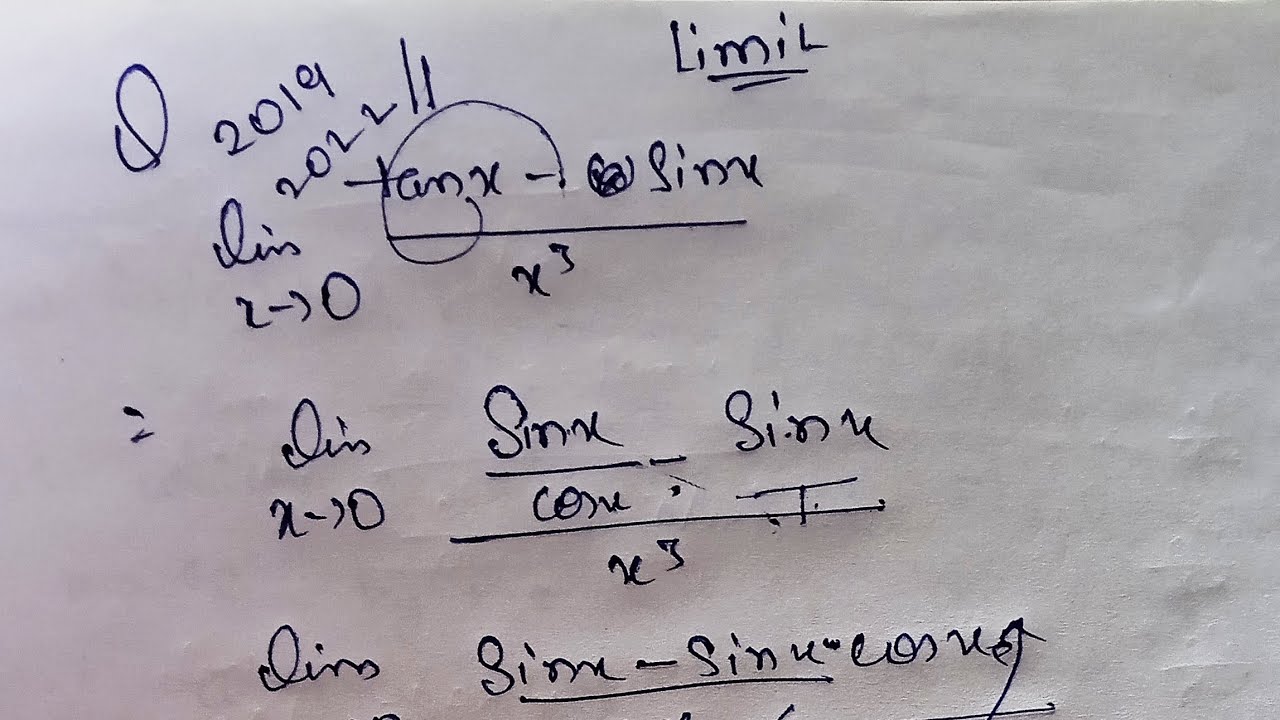 Limit
Q 2019
2022 11
lim tanx - sinx
x→0 x³
= lim sinx/cosx - sinx/1
x→0 x³
lim sinx - sinx·cosx